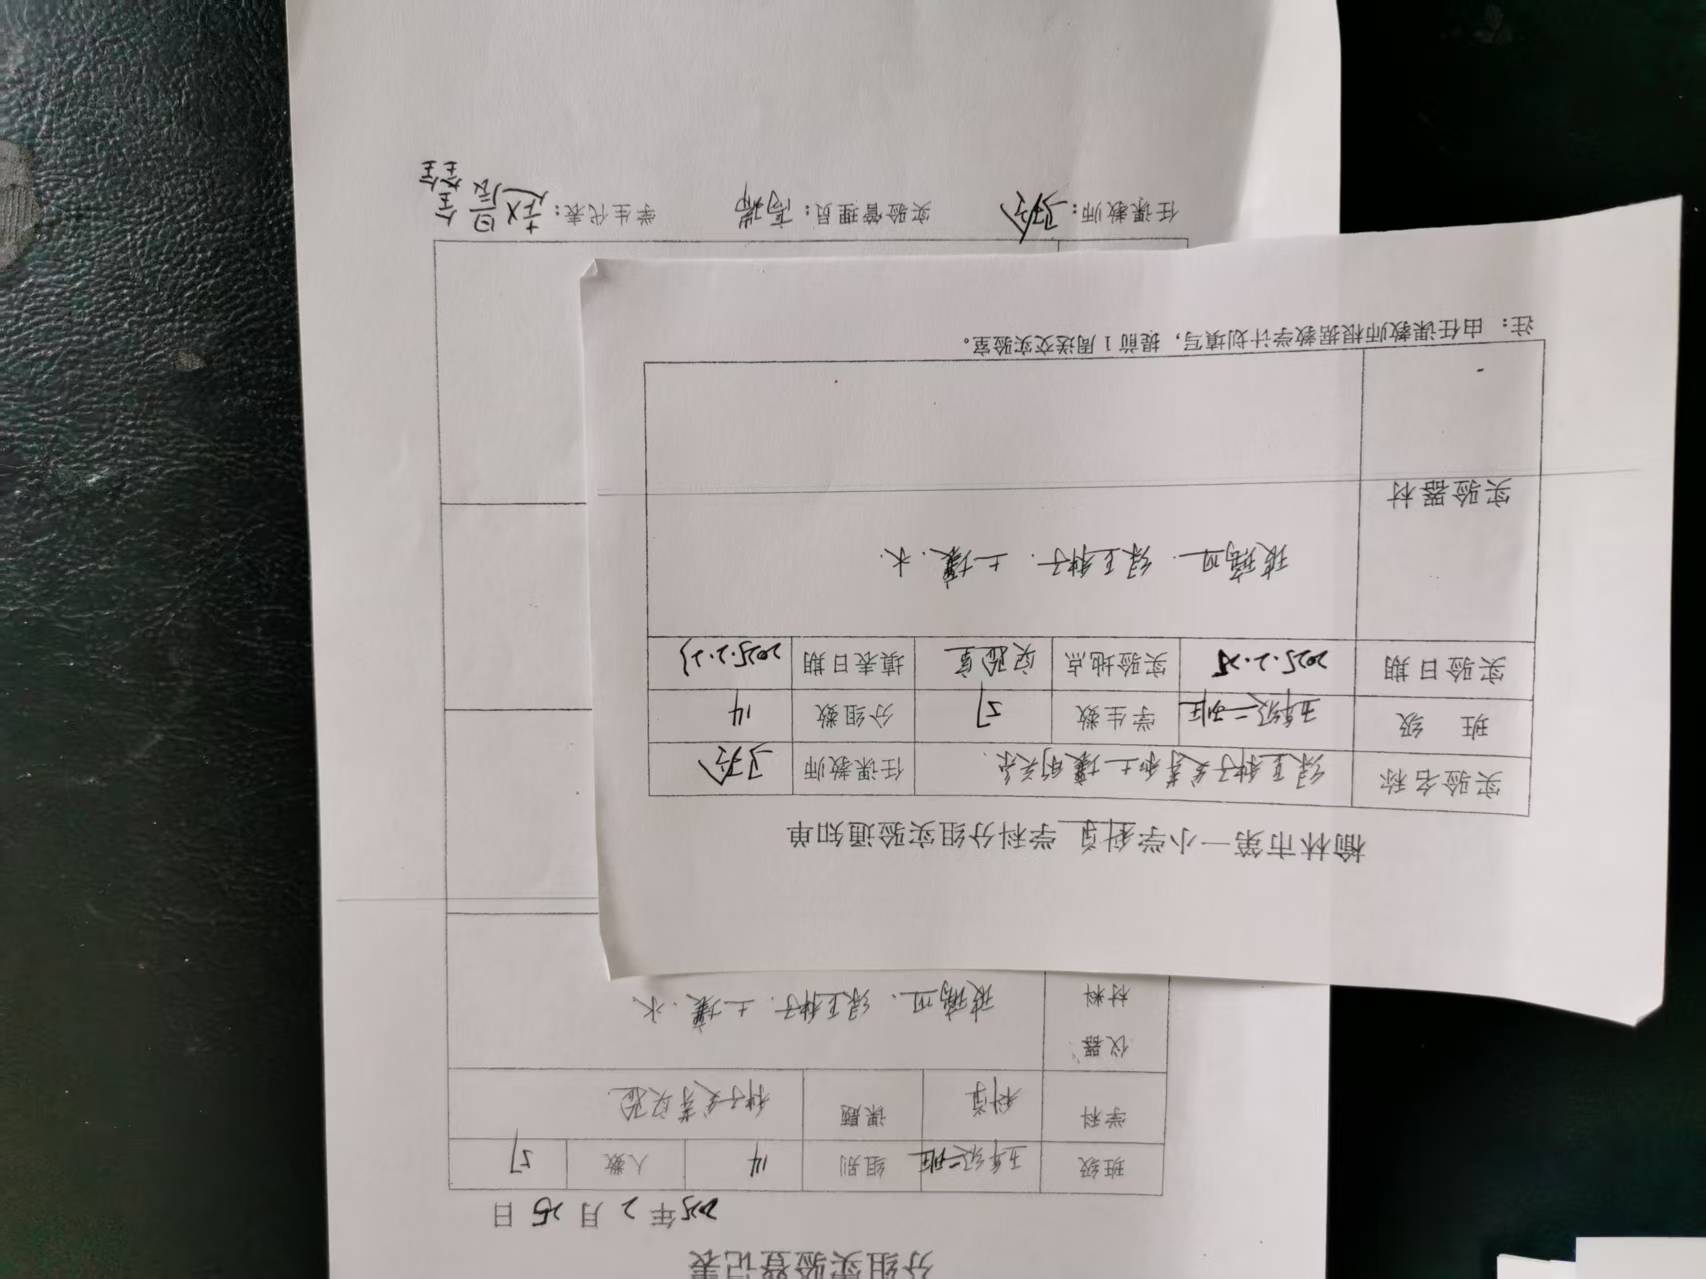 榆林市第一小学科学学科分组实验通知单
实验名称 绿豆种子发芽和土壤的关系. 任课教师
班 级 五年级二班 学生数 57 分组数 14
实验日期 2025.2.25 实验地点 实验室 填表日期 2025.2.23
实验器材 玻璃皿. 绿豆种子. 土壤. 水.
注：由任课教师根据教学计划填写，提前1周送交实验室。
分组实验登记表
2025年2月25日
班级 五年级二班 组别 14 人数 57
学科 科学 课题 种子发芽实验
仪器、
材料 玻璃皿. 绿豆种子. 土壤. 水
任课教师： 实验管理员： 学生代表：